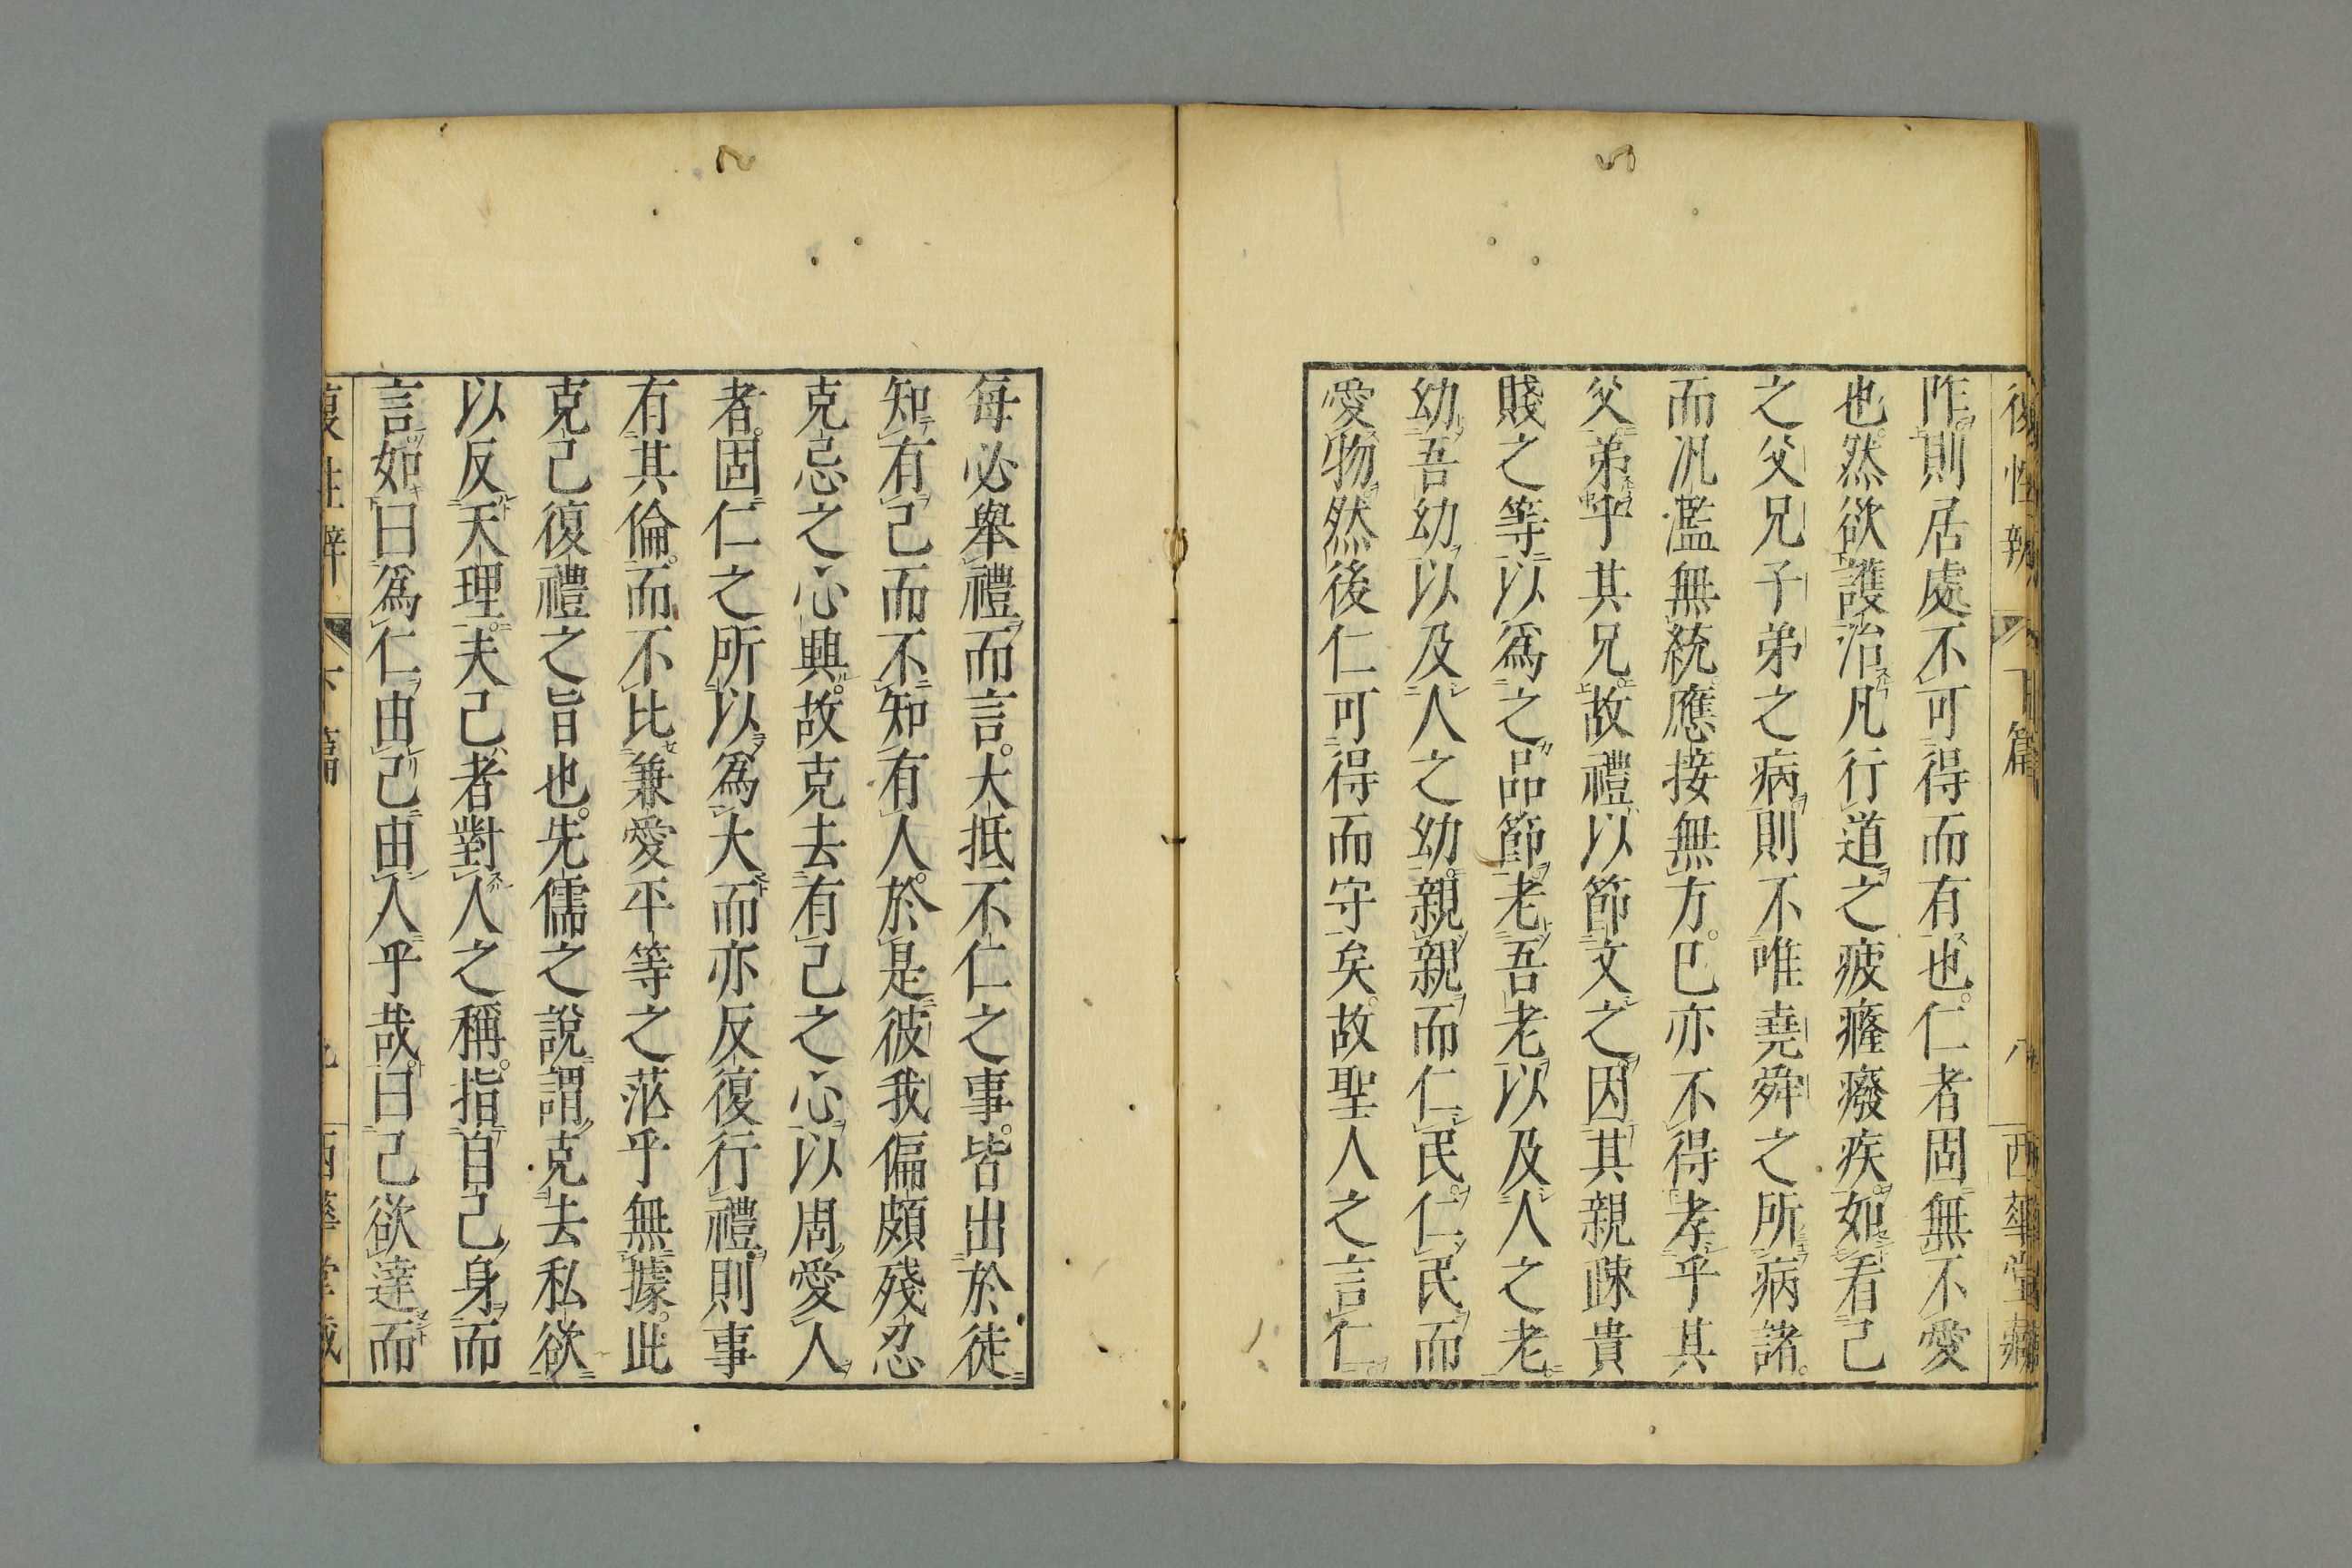 復性辨 下篇 八 西華堂藏
阼則居處不可得而有也。仁者固無不愛
也。然欲護治凡行道之疲癃癈疾。如看己
之父兄子弟之病則不唯堯舜之所病諸。
而汎濫無統。應接無方。已亦不得孝乎其
父弟乎其兄。故禮以節文之因其親疎貴
賤之等以爲之品節老吾老以及人之老。
幼吾幼以及人之幼。親親而仁民。仁民而
愛物。然後仁可得而守矣。故聖人之言仁。
每必舉禮而言。大抵不仁之事。皆出於徒
知有己而不知有人。於是彼我偏頗殘忍
克忌之心興。故克去有己之心以周愛人
者。固仁之所以爲大而亦反復行禮則事
有其倫。而不比兼愛平等之茫乎無據。此
克己復禮之旨也。先儒之說謂克去私欲
以反天理。夫己者對人之稱。指自己身而
言如曰爲仁由己由人乎哉。曰己欲達而
復性辨 下篇 九 西華堂藏